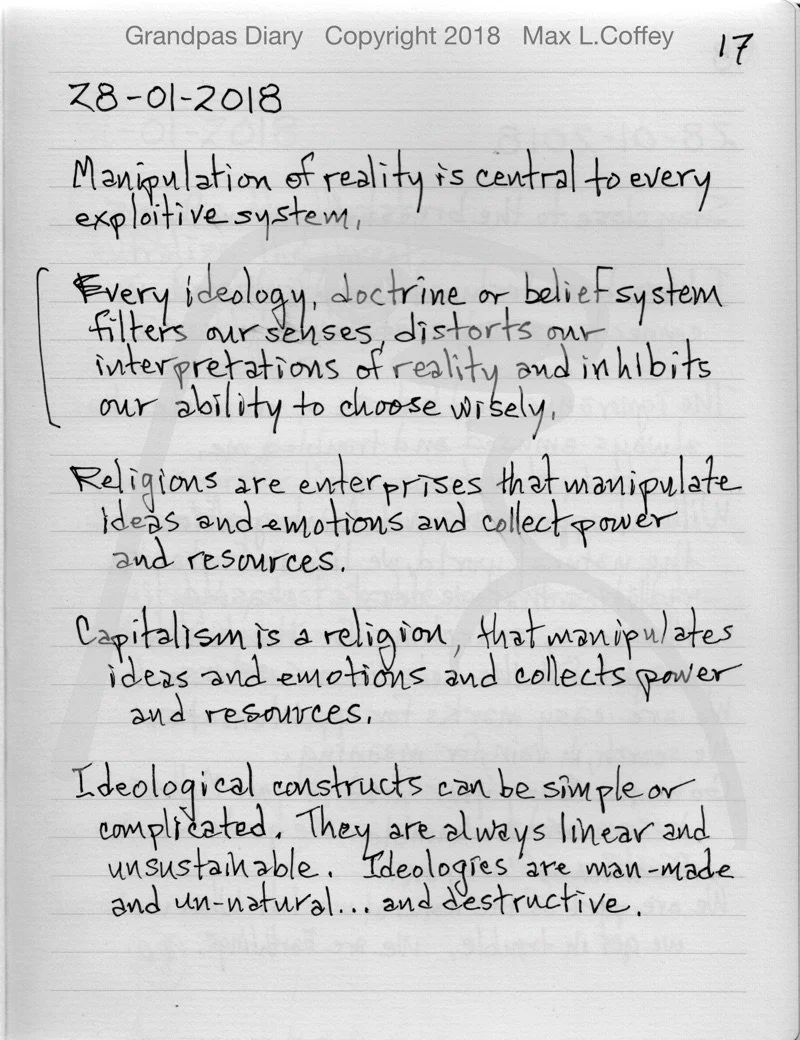 Grandpas Diary Copyright 2018 Max L.Coffey
17
28-01-2018
Manipulation of reality is central to every
exploitive system.
Every ideology, doctrine or belief system
filters our senses, distorts our
interpretations of reality and inhibits
our ability to choose wisely.
Religions are enterprises that manipulate
ideas and emotions and collect power
and resources.
Capitalism is a religion, that manipulates
ideas and emotions and collects power
and resources.
Ideological constructs can be simple or
complicated. They are always linear and
unsustainable. Ideologies are man-made
and un-natural... and destructive.